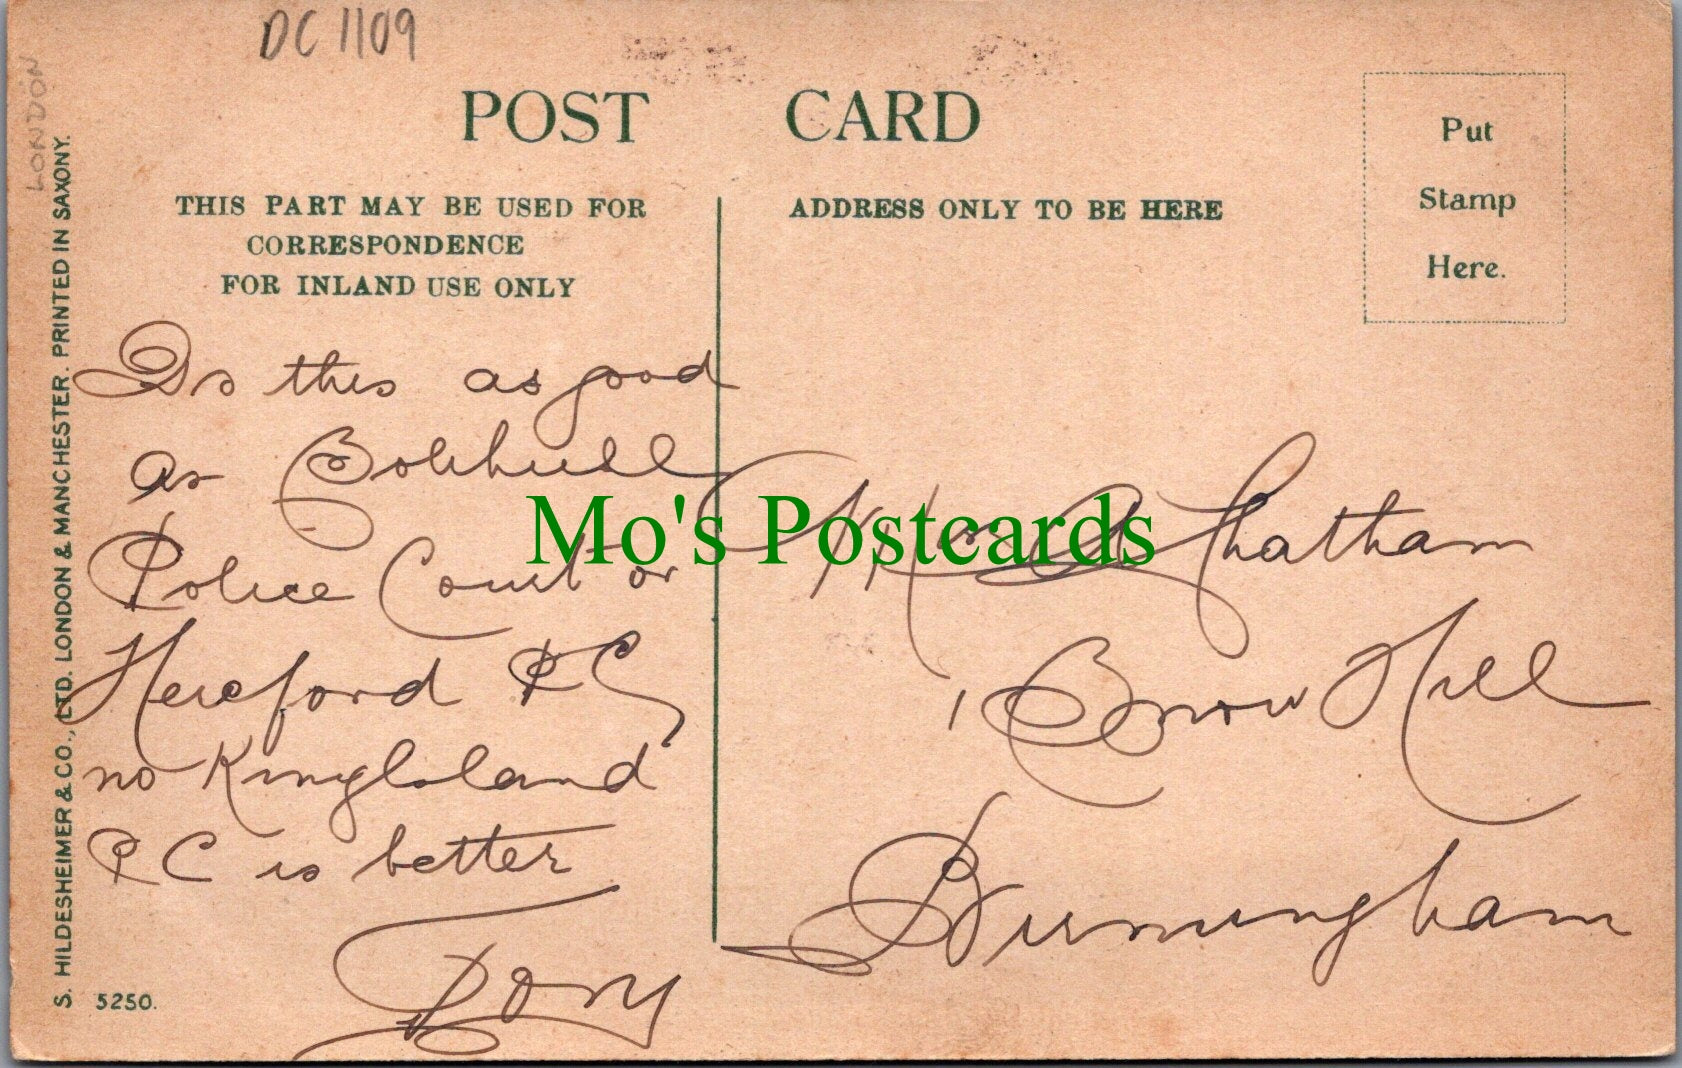 DC 1109
LONDON
POST CARD
THIS PART MAY BE USED FOR
CORRESPONDENCE
FOR INLAND USE ONLY
ADDRESS ONLY TO BE HERE
Put
Stamp
Here.
Is this as good
as
Police Court or
Hereford P C
no Kingsland
P C is better
Tony
Chatham
1 Snow Hill
Birmingham
Mo's Postcards
S. HILDESHEIMER & CO., LTD. LONDON & MANCHESTER. PRINTED IN SAXONY.
5250.